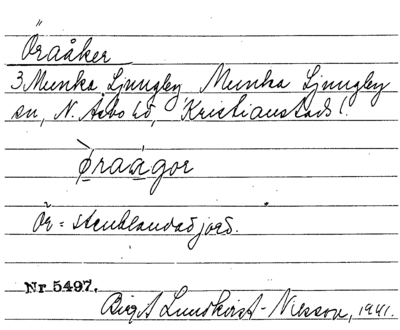 Öraåker
3 Munka Ljungby, Munka Ljungby
sn, N. Åsbo hd, Kristianstads l.
øraågor
Ör = stenblandad jord.
Nr. 5497.
Birgit Lundkvist-Nilsson, 1941.